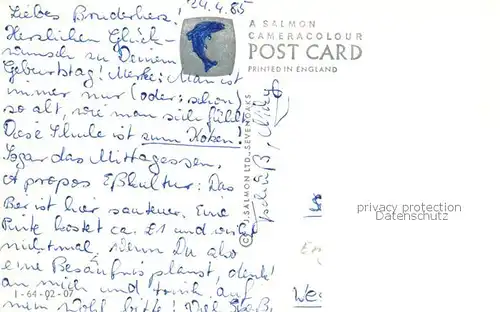 24.4.85
Liebes Bruderherz!
Herzlichen Glück-
wunsch zu Deinem
Geburtstag! Merke: Man ist
immer nur (oder: schon)
so alt, wie man sich fühlt.
Diese Schule ist zum Kotzen!
Sogar das Mittagessen.
A propos Eßkultur: Das
Bier ist hier sauteuer. Eine
Pinte kostet ca. £1 und
nichtmal. Wenn Du also
eine Besäufnis planst, denk'
an mich und trink' auf
mein Wohl bitte! Viel Spaß,
Tschüß,
A SALMON
CAMERACOLOUR
POST CARD
PRINTED IN ENGLAND
© J. SALMON LTD., SEVENOAKS
1-64-02-07
privacy protection
Datenschutz